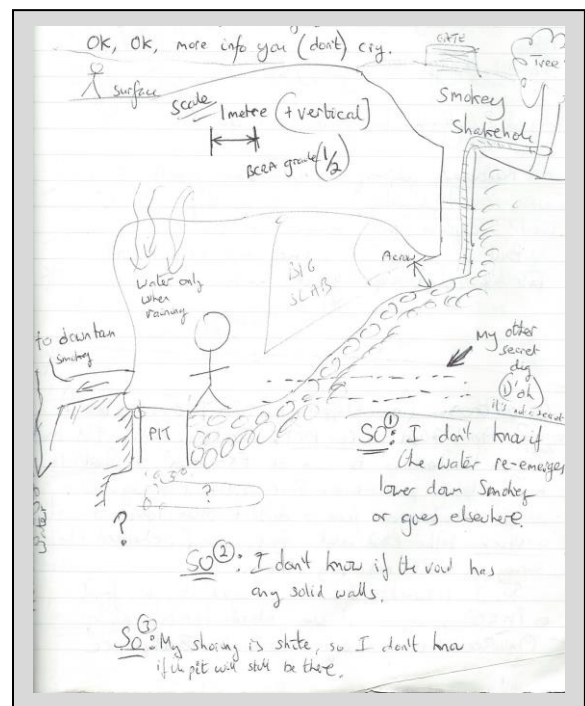 OK, OK, more info you (don't) cry.
GATE
Tree
surface
Scale
1 metre (+ vertical]
BCRA grade (1/2)
Smokey
Shakehole
Acrow
BIG
SLAB
Water only
when
raining
to downtain
smokey
My other
secret
dig
(D'oh
it's not a secret
PIT
?
?
SO①: I don't know if
the water re-emerges
lower down Smokey
or goes elsewhere.
SO②: I don't know if the void has
any solid walls.
SO③: My shoring is shite, so I don't know
if the pit will still be there.